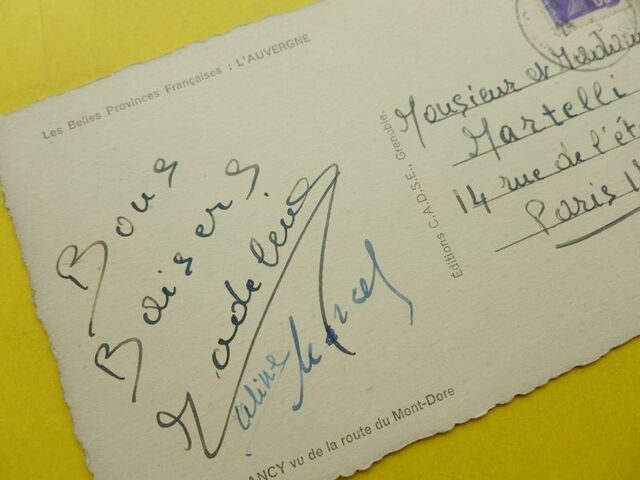 Les Belles Provinces Françaises : L'AUVERGNE
Bons
Baisers
Madeleine
Aline
Marcel
Éditions C.A.D.S.E., Grenoble.
Monsieur et Madame
Martelli
14 rue de l'ét
Paris 1
ANCY vu de la route du Mont-Dore